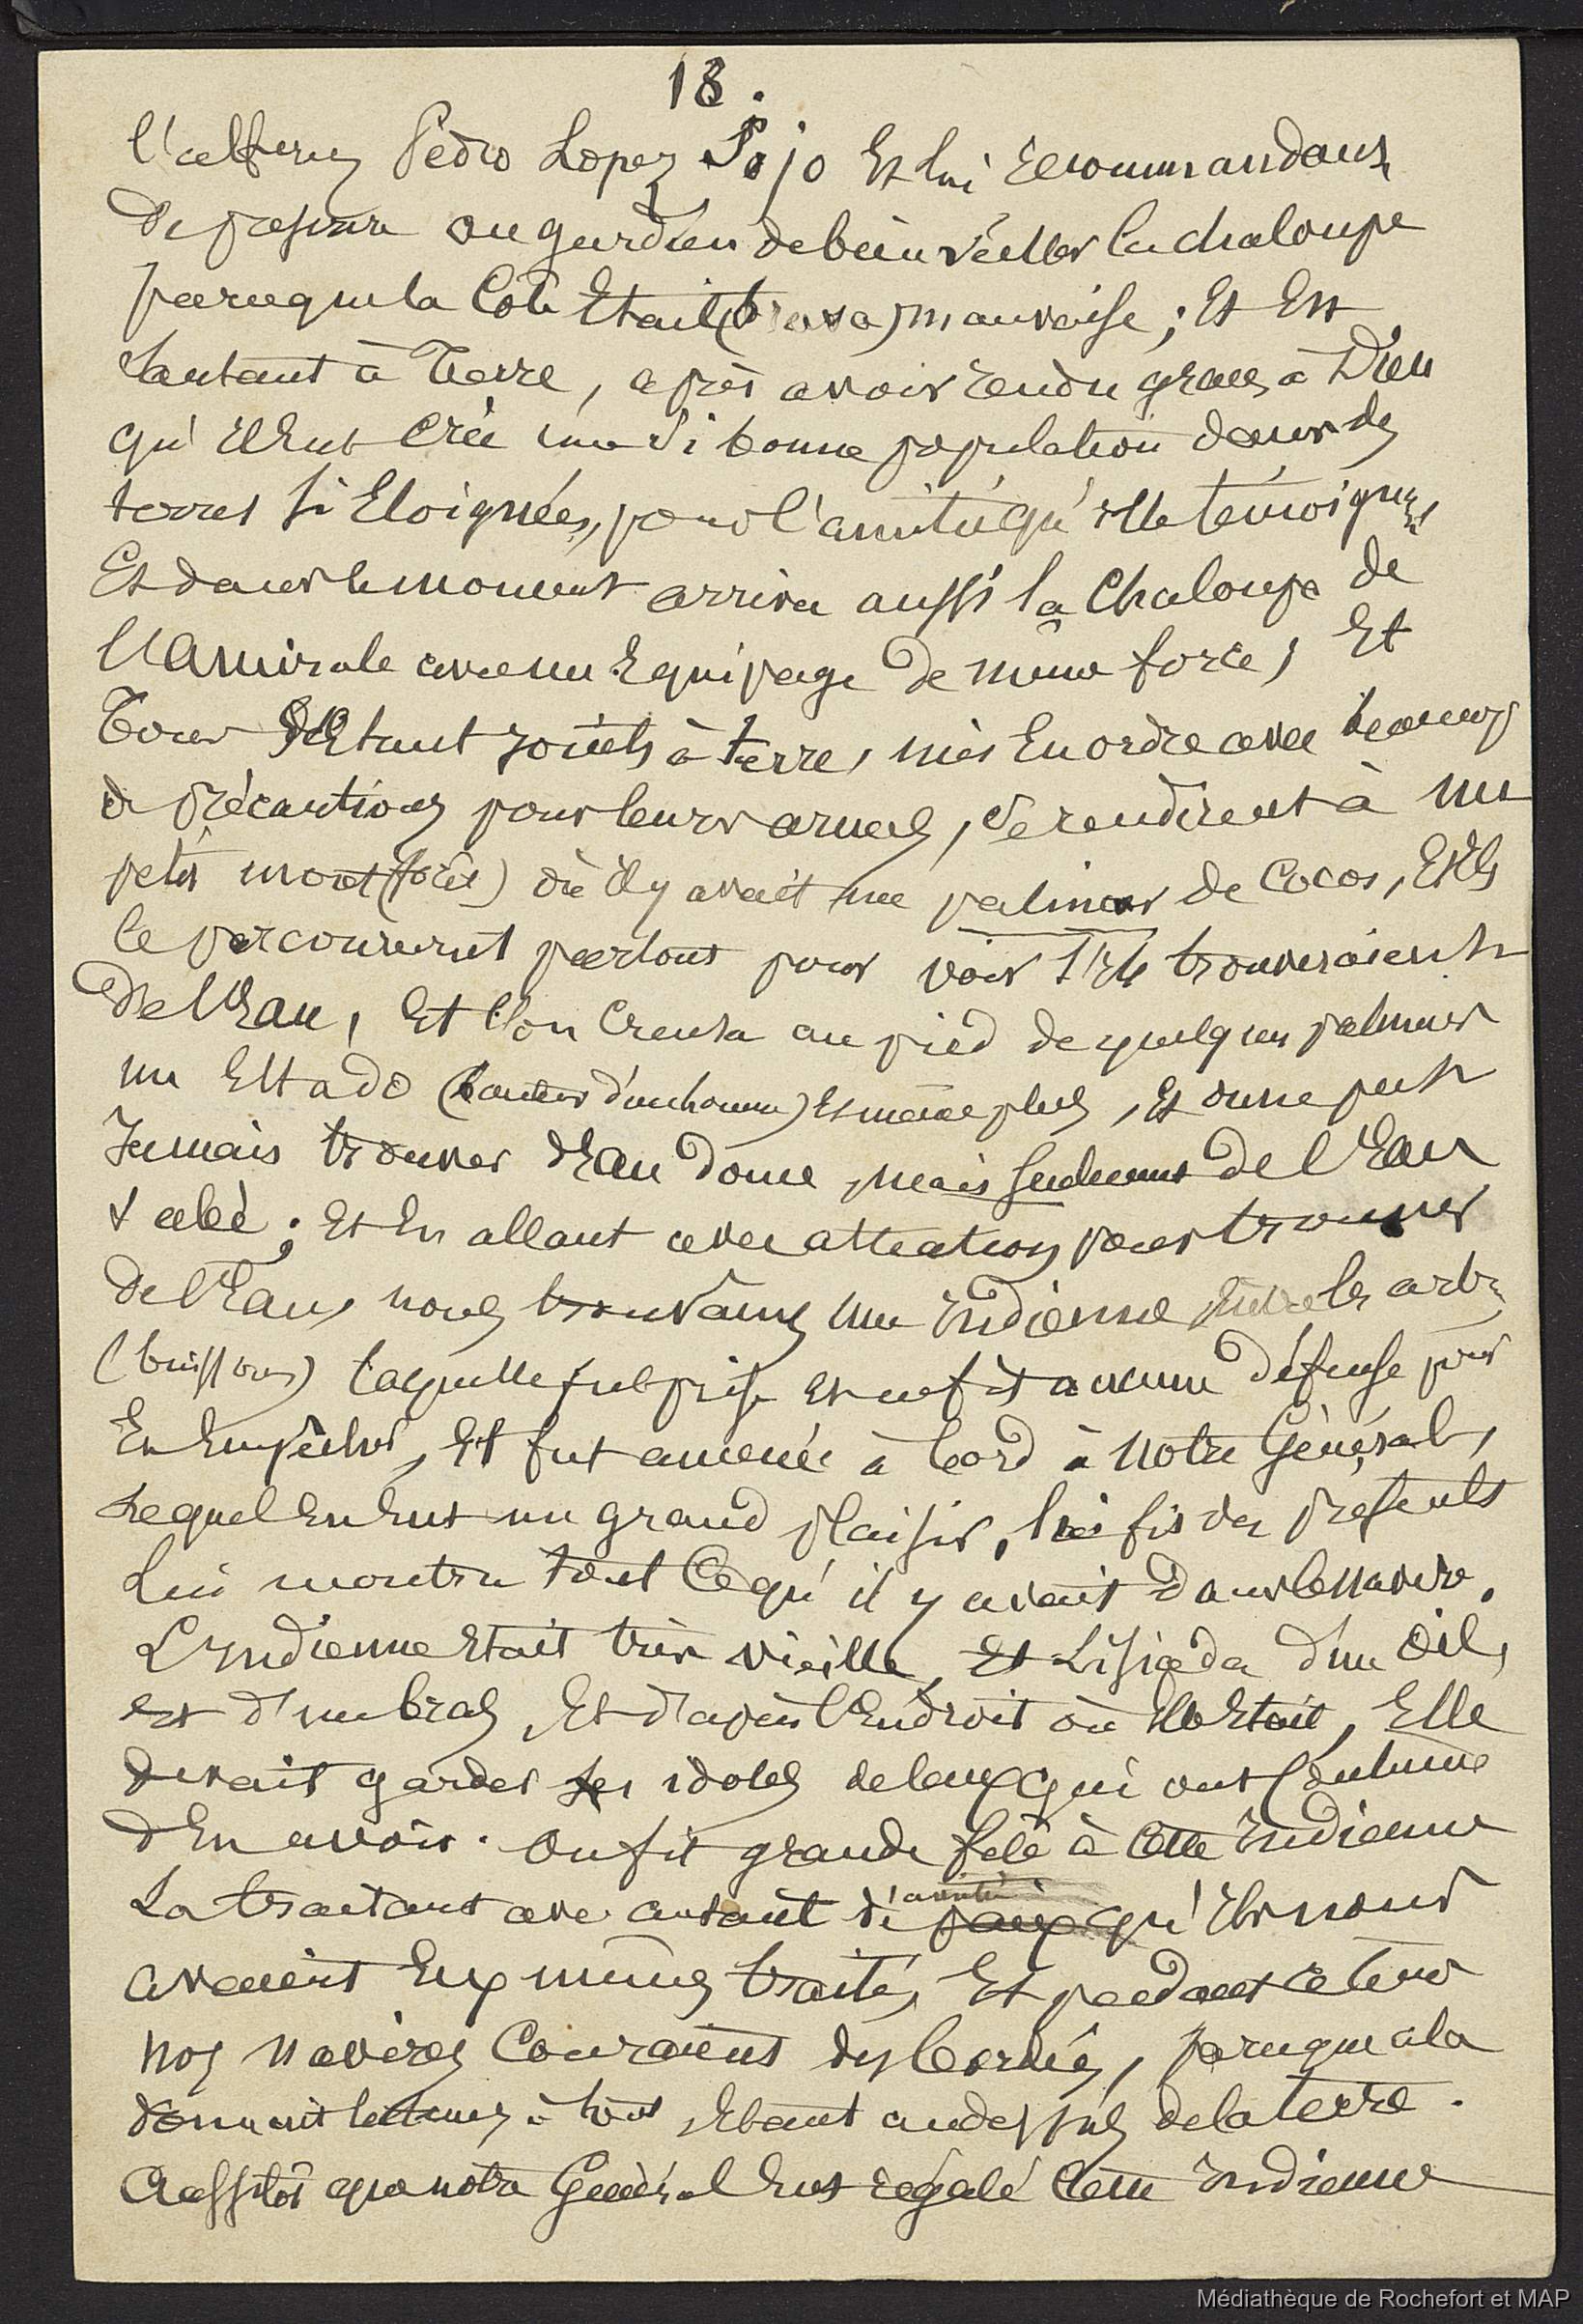 18.
l'alferez Pedro Lopez Sojo Et lui recommandant
de passer au gardien de bien veiller la chaloupe
parceque la Côte Etait (brava) mauvaise ; Et En
Sautant à Terre, après avoir rendu graces à Dieu
qu'il eut Créé une si bonne population dans des
terres si Eloignées, pour l'amitié qu'elle témoignait,
Et dans le moment arriva aussi la Chaloupe de
l'Amirale avec un Equipage de même force, Et
Tous Etant joints à terre, mis En ordre avec beaucoup
de précautions pour leurs armes, se rendirent à un
petit mont (forêt) où il y avait une palmier de Cocos, Et ils
le parcoururent partout pour voir s'ils trouveraient
De l'Eau, Et l'on Creusa au pied de quelques palmiers
un Estado (hauteur d'un homme) Et même plus, Et on ne put
Jamais trouver d'Eau douce, mais seulement de l'Eau
salée ; Et En allant avec attention pour trouver
de l'Eau, nous trouvâmes une Indienne entre les arbres
(buissons) laquelle fut prise et ne fit aucune défense pour
En Empêcher, Et fut amenée à bord à Notre Général,
Lequel en Eut un grand plaisir, lui fit des présents
Lui montra tout Ce qu'il y avait dans le navire.
L'Indienne Etait très vieille, Et Lisiada d'un Oeil,
et d'un bras, Et d'après l'Endroit où Elle Etait, Elle
devait garder les idoles de ceux qui ont Coutume
d'En avoir. On fit grande fête à Cette Indienne
La traitant avec autant d'amitié paix qu'ils nous
avaient Eux mêmes traités, Et pendant ce tems
nos navires Couraient des bordées, parceque cela
donnait le tems à tous, Etant au dessus de la terre.
Aussitôt que notre Général Eut régalé Cette Indienne
Médiathèque de Rochefort et MAP